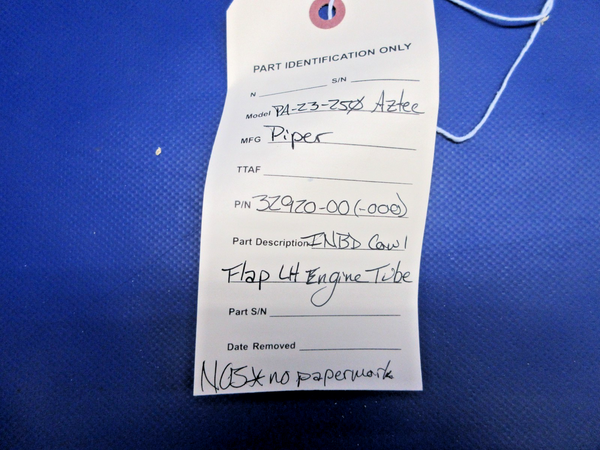 PART IDENTIFICATION ONLY
N S/N
Model PA-23-250 Aztec
MFG Piper
TTAF
P/N 32920-00 (-000)
Part Description INBD Cowl
Flap LH Engine Tube
Part S/N
Date Removed
NOS * no paperwork